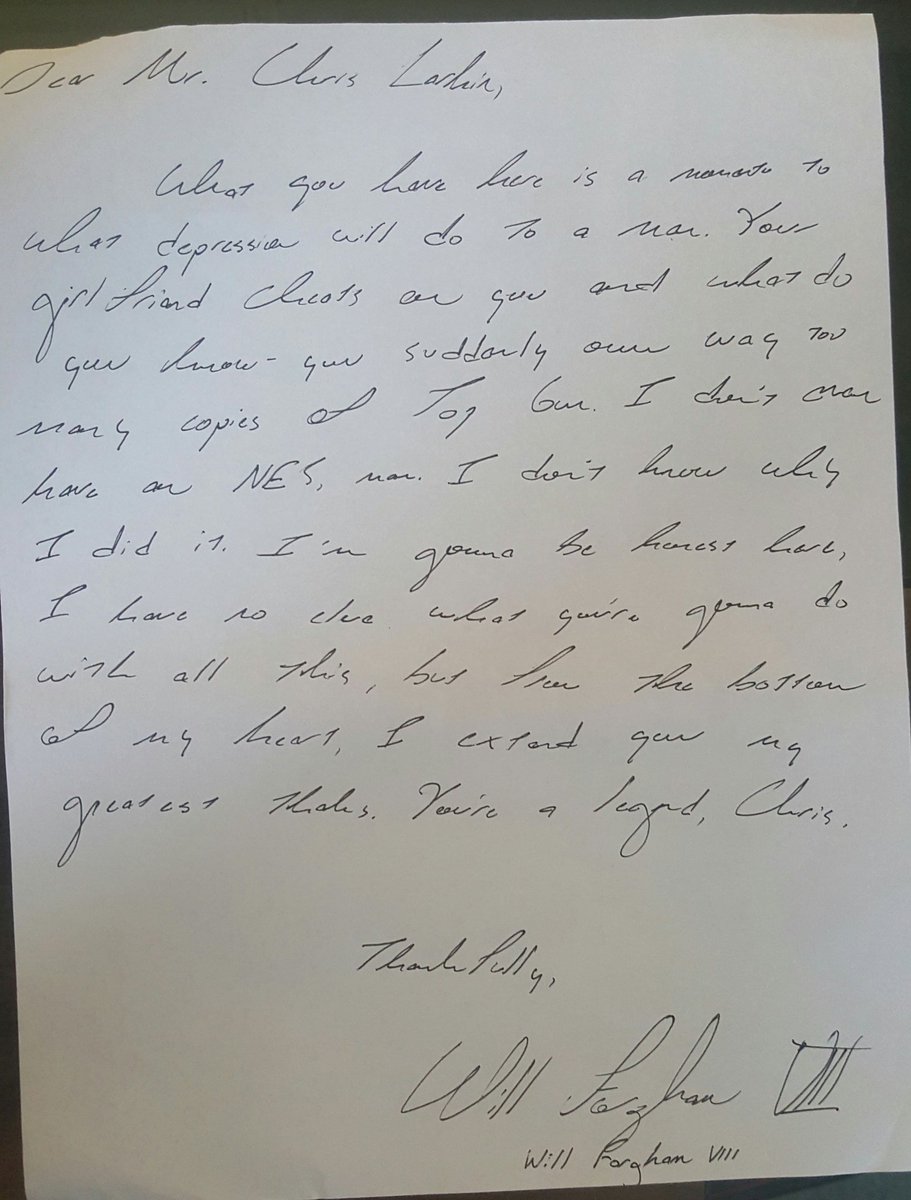 Dear Mr. Chris Larkin,
What you have here is a memento to
what depression will do to a man. Your
girlfriend cheats on you and what do
you know - you suddenly own way too
many copies of Top Gun. I don't even
have an NES, man. I don't know why
I did it. I'm gonna be honest here,
I have no clue what you're gonna do
with all this, but from the bottom
of my heart, I extend you my
greatest thanks. You're a legend, Chris.
Thankfully,
Will Forgham VIII
Will Forgham VIII